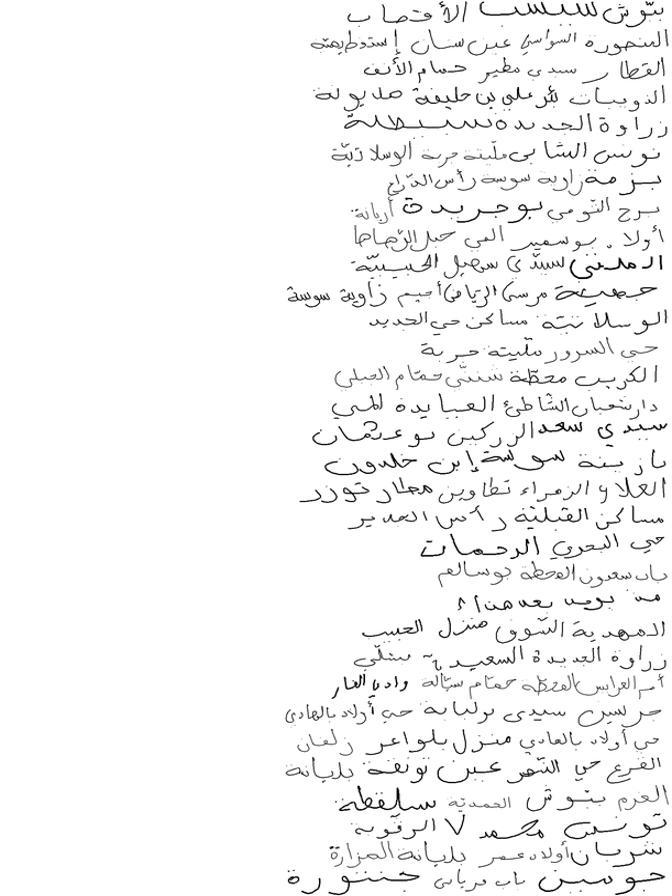 بتوش سبسب الأقصاب
المنصورة السواسي عين سنان
القطار سيدي مطير حمام الأنف
الذويبات بئر علي بن خليفة
زراوة الجديدة سبيطلة
تونس الشابي مليتة جربة الوسلاتية
بزمة زاوية سوسة رأس الذراع
برج التومي بوجريدة أريانة
أولاد بوسمير
سيدي سهيل الحبيبية
مرسى الرياض أميم زاوية سوسة
الوسلاتية مساكن حي الجديد
حي السرور مليتة جربة
الكريب محطة شنني حمام الجبلي
دار شعبان الشاطئ العبايدة
سيدي سعد الركبين بوعثمان
بازينة سوسة إبن خلدون
العلا الزهراء تطاوين مطار توزر
مساكن القبلية رأس
حي البحري الرحمات
باب سعدون المحطة بوسالم
المهدية الشوق منزل الحبيب
زراوة الجديدة السعيدية
أم العرايس المحطة حمام سيالة وادي الغار
جرسين سيدي بولبابة حي أولاد بالهادي
حي أولاد بالهادي منزل بلواعر زلفان
القرع حي عين تونقة بليانة
العرم بتوش الحمدية سيلقطة
تونس محمد
شربان أولاد عمر بليانة المزارة
جوسين باب